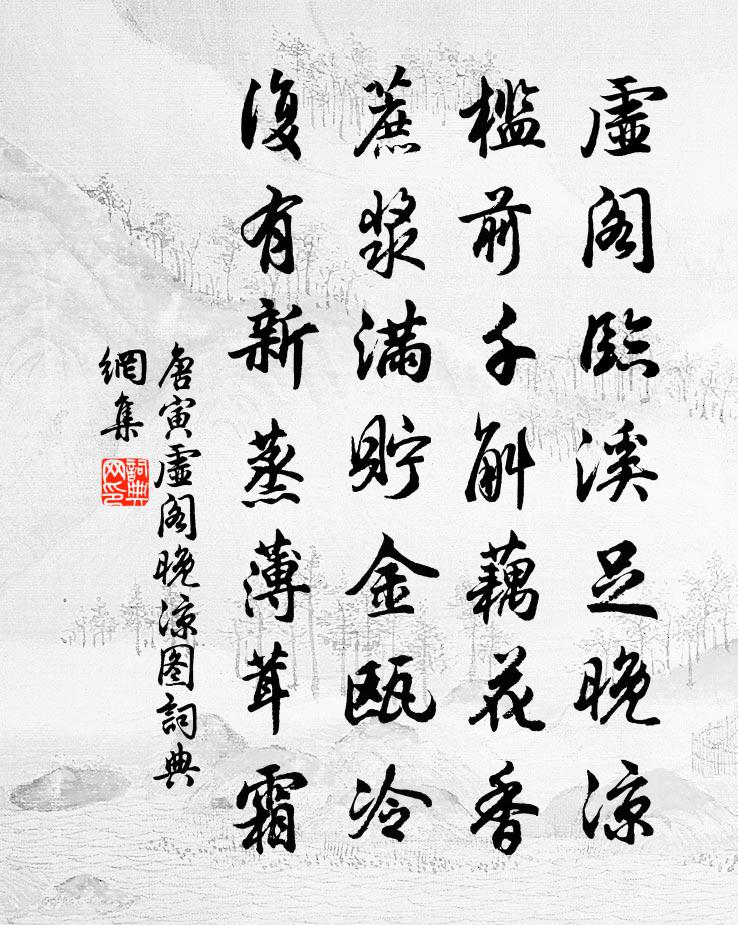 虛閣臨溪足晚涼
檻前千斛藕花香
蔗漿滿貯金甌冷
復有新蒸薄茸霜
唐寅虛閣晚涼图詞典
網集
詞典
网印